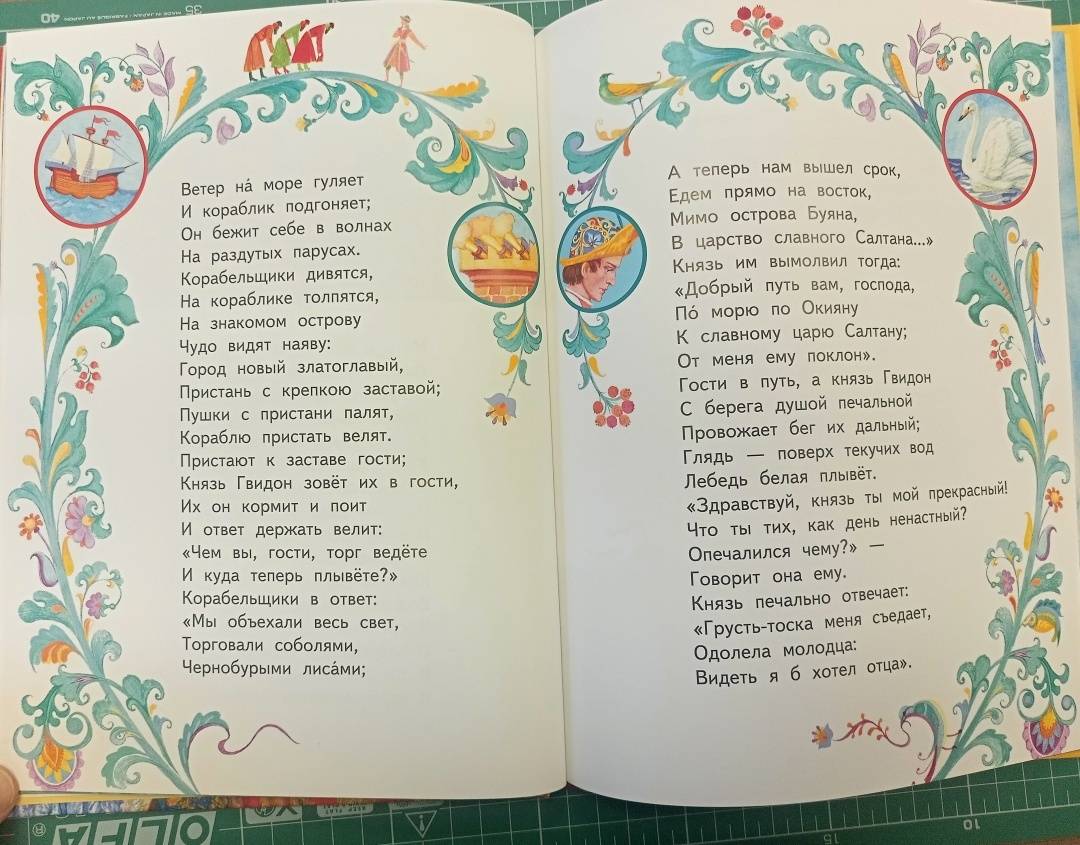 40
35
MADE IN JAPAN
Ветер на́ море гуляет
И кораблик подгоняет;
Он бежит себе в волнах
На раздутых парусах.
Корабельщики дивятся,
На кораблике толпятся,
На знакомом острову
Чудо видят наяву:
Город новый златоглавый,
Пристань с крепкою заставой;
Пушки с пристани палят,
Кораблю пристать велят.
Пристают к заставе гости;
Князь Гвидон зовёт их в гости,
Их он кормит и поит
И ответ держать велит:
«Чем вы, гости, торг ведёте
И куда теперь плывёте?»
Корабельщики в ответ:
«Мы объехали весь свет,
Торговали соболями,
Чернобурыми лиса́ми;
А теперь нам вышел срок,
Едем прямо на восток,
Мимо острова Буяна,
В царство славного Салтана...»
Князь им вымолвил тогда:
«Добрый путь вам, господа,
По́ морю по Окияну
К славному царю Салтану;
От меня ему поклон».
Гости в путь, а князь Гвидон
С берега душой печальной
Провожает бег их дальный;
Глядь — поверх текучих вод
Лебедь белая плывёт.
«Здравствуй, князь ты мой прекрасный!
Что ты тих, как день ненастный?
Опечалился чему?» —
Говорит она ему.
Князь печально отвечает:
«Грусть-тоска меня съедает,
Одолела молодца:
Видеть я б хотел отца».
OLFA®
KEEP FLAT
15
10